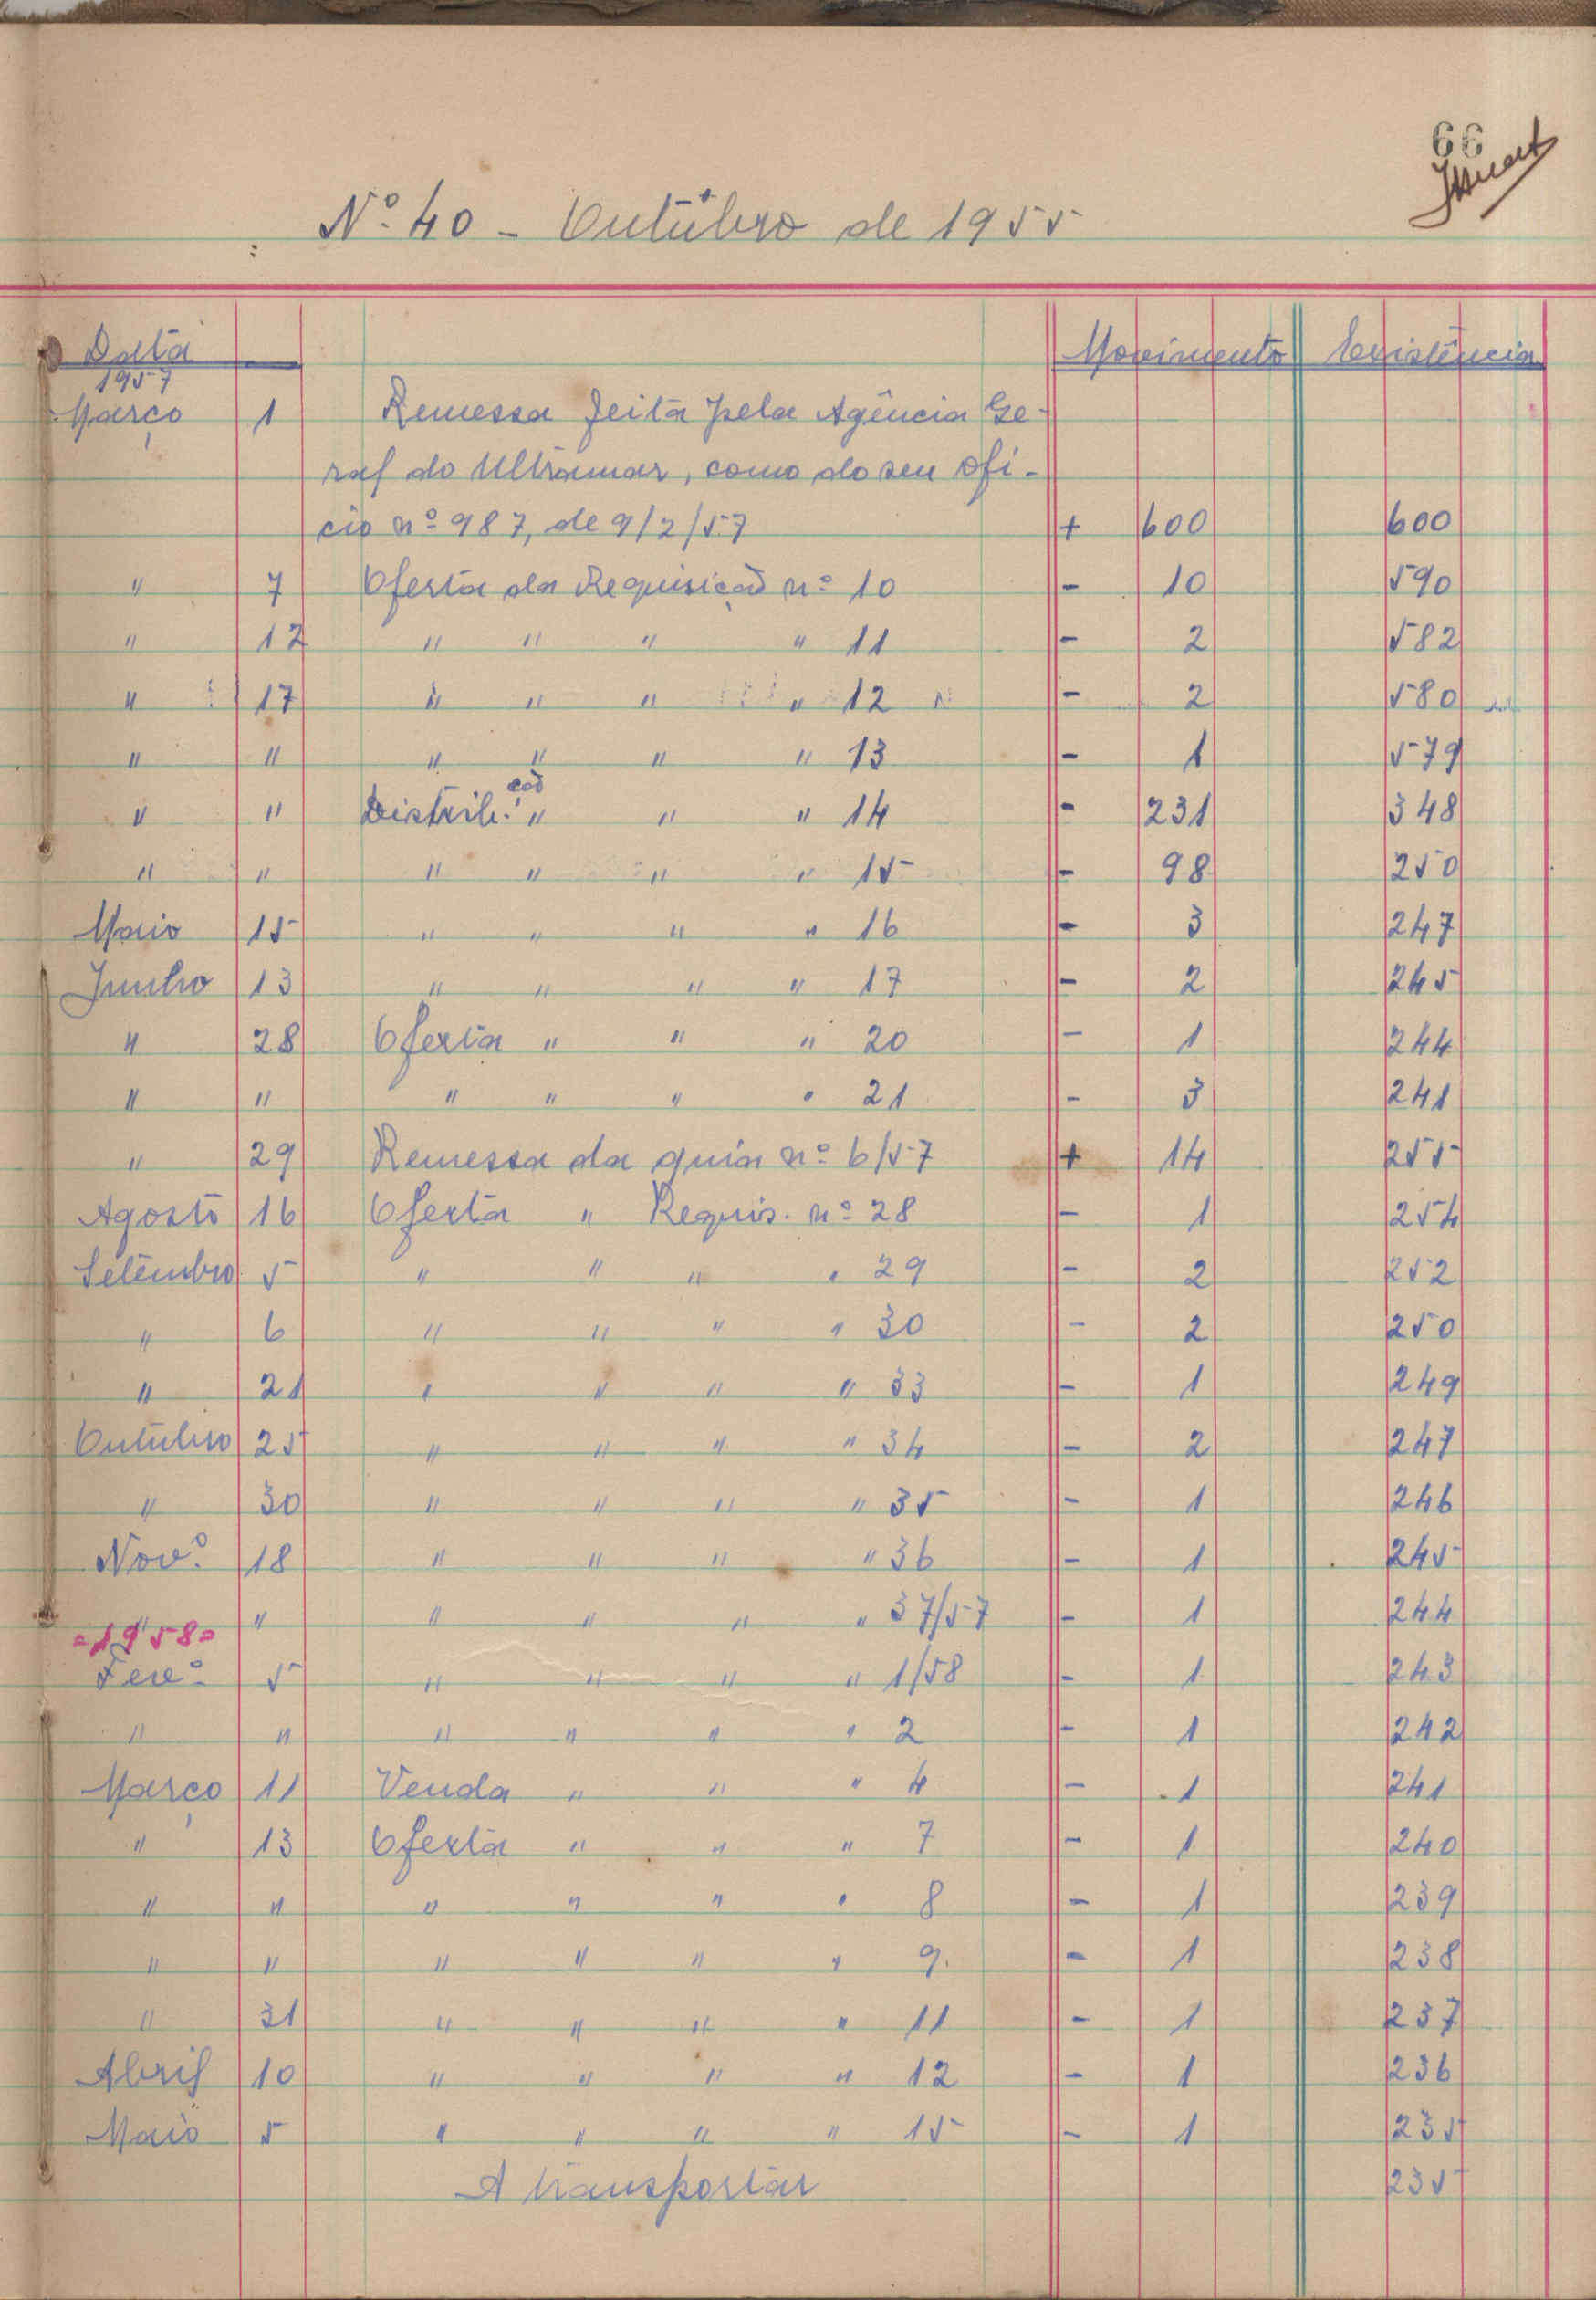 66
Nº 40 - Outubro de 1955
Data Movimento Existência
1957
Março 1 Remessa feita pela Agência Ge-
ral do Ultramar, como do seu ofi-
cio nº 987, de 9/2/57 + 600 600
" 7 Oferta da Requisição nº 10 - 10 590
" 12 " " " " 11 - 2 582
" 17 " " " " 12 - 2 580
" " " " " " 13 - 1 579
" " Distrib.ção " " " 14 - 231 348
" " " " " " 15 - 98 250
Maio 15 " " " " 16 - 3 247
Junho 13 " " " " 17 - 2 245
" 28 Oferta " " " 20 - 1 244
" " " " " " 21 - 3 241
" 29 Remessa da guia nº 6/57 + 14 255
Agosto 16 Oferta " Requis. nº 28 - 1 254
Setembro 5 " " " " 29 - 2 252
" 6 " " " " 30 - 2 250
" 21 " " " " 33 - 1 249
Outubro 25 " " " " 34 - 2 247
" 30 " " " " 35 - 1 246
Novº 18 " " " " 36 - 1 245
" " " " " " 37/57 - 1 244
=1958=
Fevº 5 " " " " 1/58 - 1 243
" " " " " " 2 - 1 242
Março 11 Venda " " " 4 - 1 241
" 13 Oferta " " " 7 - 1 240
" " " " " " 8 - 1 239
" " " " " " 9 - 1 238
" 31 " " " " 11 - 1 237
Abril 10 " " " " 12 - 1 236
Maio 5 " " " " 15 - 1 235
A transportar 235